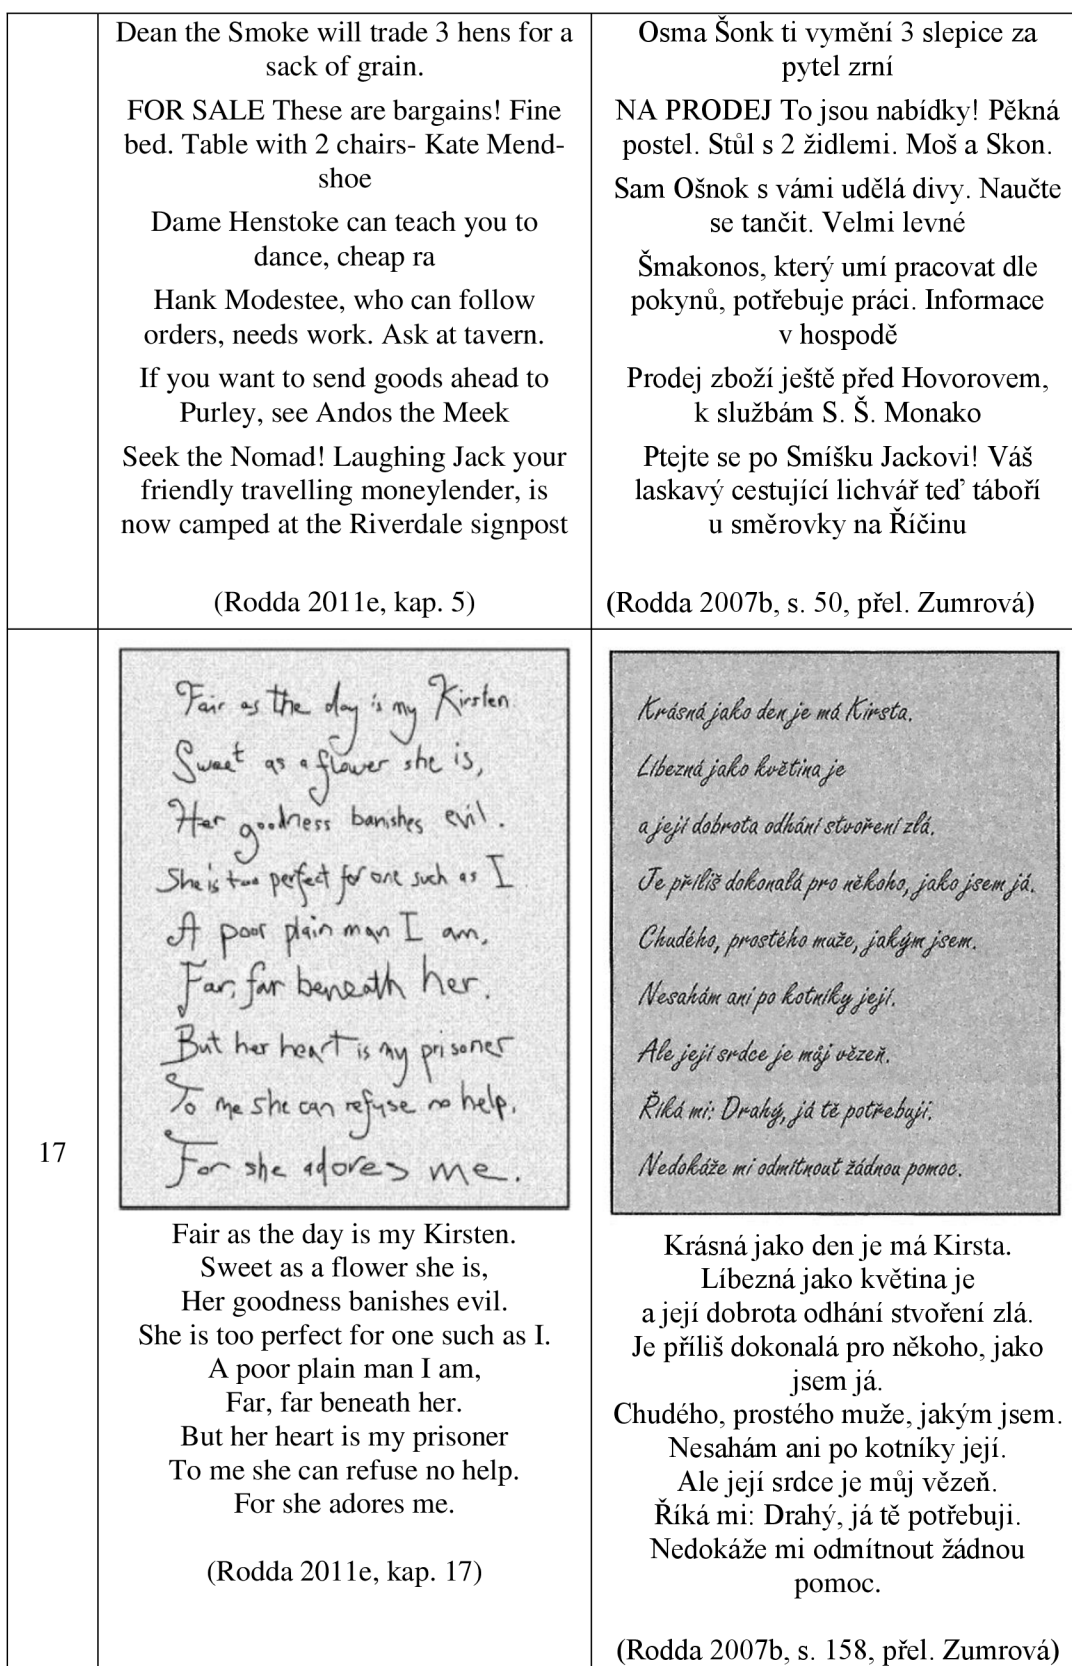 Dean the Smoke will trade 3 hens for a
sack of grain.
FOR SALE These are bargains! Fine
bed. Table with 2 chairs- Kate Mend-
shoe
Dame Henstoke can teach you to
dance, cheap ra
Hank Modestee, who can follow
orders, needs work. Ask at tavern.
If you want to send goods ahead to
Purley, see Andos the Meek
Seek the Nomad! Laughing Jack your
friendly travelling moneylender, is
now camped at the Riverdale signpost
(Rodda 2011e, kap. 5)
Osma Šonk ti vymění 3 slepice za
pytel zrní
NA PRODEJ To jsou nabídky! Pěkná
postel. Stůl s 2 židlemi. Moš a Skon.
Sam Ošnok s vámi udělá divy. Naučte
se tančit. Velmi levné
Šmakonos, který umí pracovat dle
pokynů, potřebuje práci. Informace
v hospodě
Prodej zboží ještě před Hovorovem,
k službám S. Š. Monako
Ptejte se po Smíšku Jackovi! Váš
laskavý cestující lichvář teď táboří
u směrovky na Říčinu
(Rodda 2007b, s. 50, přel. Zumrová)
17
Fair as the day is my Kirsten.
Sweet as a flower she is,
Her goodness banishes evil.
She is too perfect for one such as I
A poor plain man I am,
Far, far beneath her.
But her heart is my prisoner
To me she can refuse no help.
For she adores me.
Fair as the day is my Kirsten.
Sweet as a flower she is,
Her goodness banishes evil.
She is too perfect for one such as I.
A poor plain man I am,
Far, far beneath her.
But her heart is my prisoner
To me she can refuse no help.
For she adores me.
(Rodda 2011e, kap. 17)
Krásná jako den je má Kirsta.
Líbezná jako květina je
a její dobrota odhání stvoření zlá.
Je příliš dokonalá pro někoho, jako jsem já.
Chudého, prostého muže, jakým jsem.
Nesahám ani po kotníky její.
Ale její srdce je můj vězeň.
Říká mi: Drahý, já tě potřebuji.
Nedokáže mi odmítnout žádnou pomoc.
Krásná jako den je má Kirsta.
Líbezná jako květina je
a její dobrota odhání stvoření zlá.
Je příliš dokonalá pro někoho, jako
jsem já.
Chudého, prostého muže, jakým jsem.
Nesahám ani po kotníky její.
Ale její srdce je můj vězeň.
Říká mi: Drahý, já tě potřebuji.
Nedokáže mi odmítnout žádnou
pomoc.
(Rodda 2007b, s. 158, přel. Zumrová)